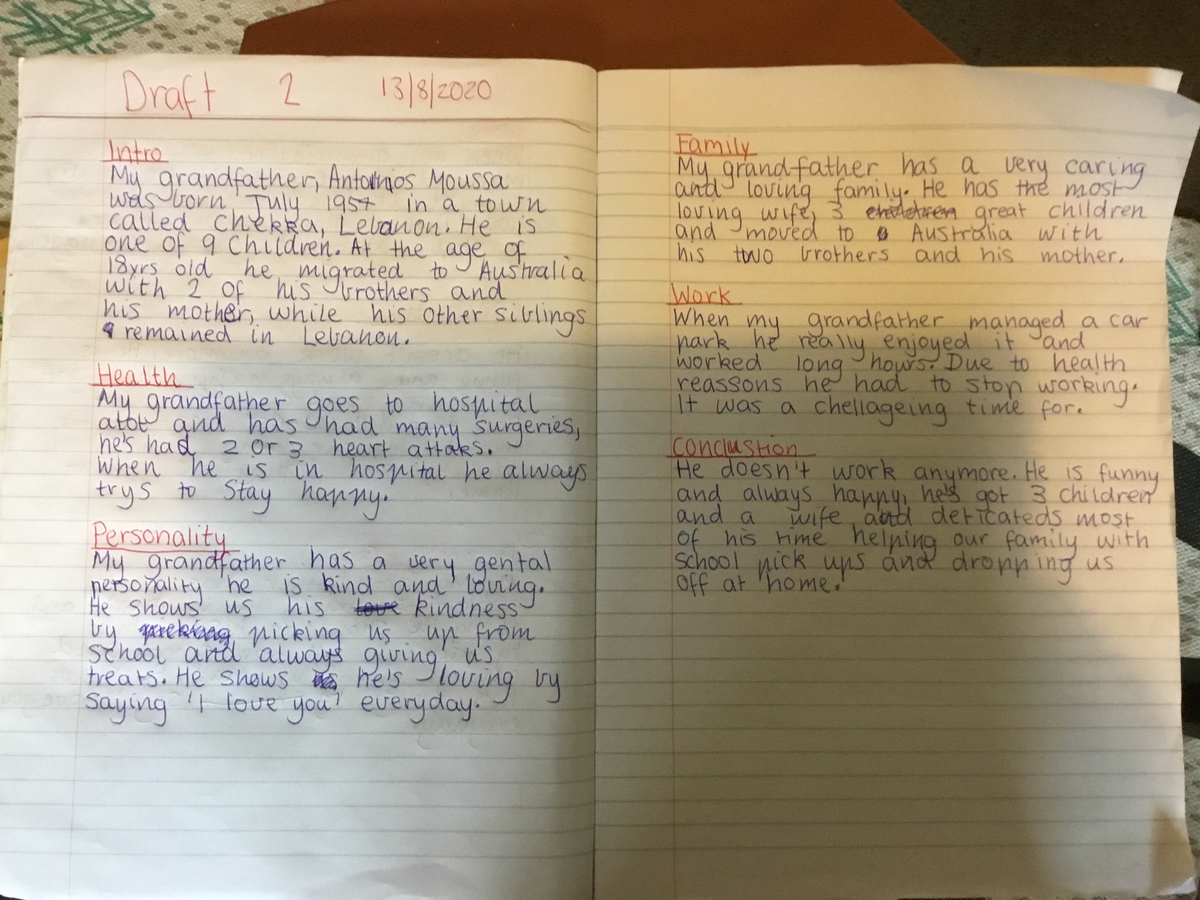 Draft 2 13/8/2020
Intro
My grandfather, Antonios Moussa
was born July 1957 in a town
called Chekka, Lebanon. He is
one of 9 Children. At the age of
18yrs old he migrated to Australia
with 2 of his brothers and
his mother, while his other siblings
remained in Lebanon.
Health
My grandfather goes to hospital
alot and has had many surgeries,
he's had 2 or 3 heart attaks.
When he is in hospital he always
trys to Stay happy.
Personality
My grandfather has a very gental
personality he is kind and loving.
He shows us his love kindness
by picking us up from
School and always giving us
treats. He shows he's loving by
Saying 'I love you' everyday.
Family
My grandfather has a very caring
and loving family. He has the most
loving wife, 3 great children
and moved to Australia with
his two brothers and his mother.
Work
When my grandfather managed a car
park he really enjoyed it and
worked long hours. Due to health
reassons he had to stop working.
It was a chellageing time for.
Conclustion
He doesn't work anymore. He is funny
and always happy, he's got 3 children
and a wife, and deticateds most
of his time helping our family with
School pick ups and dropping us
off at home.